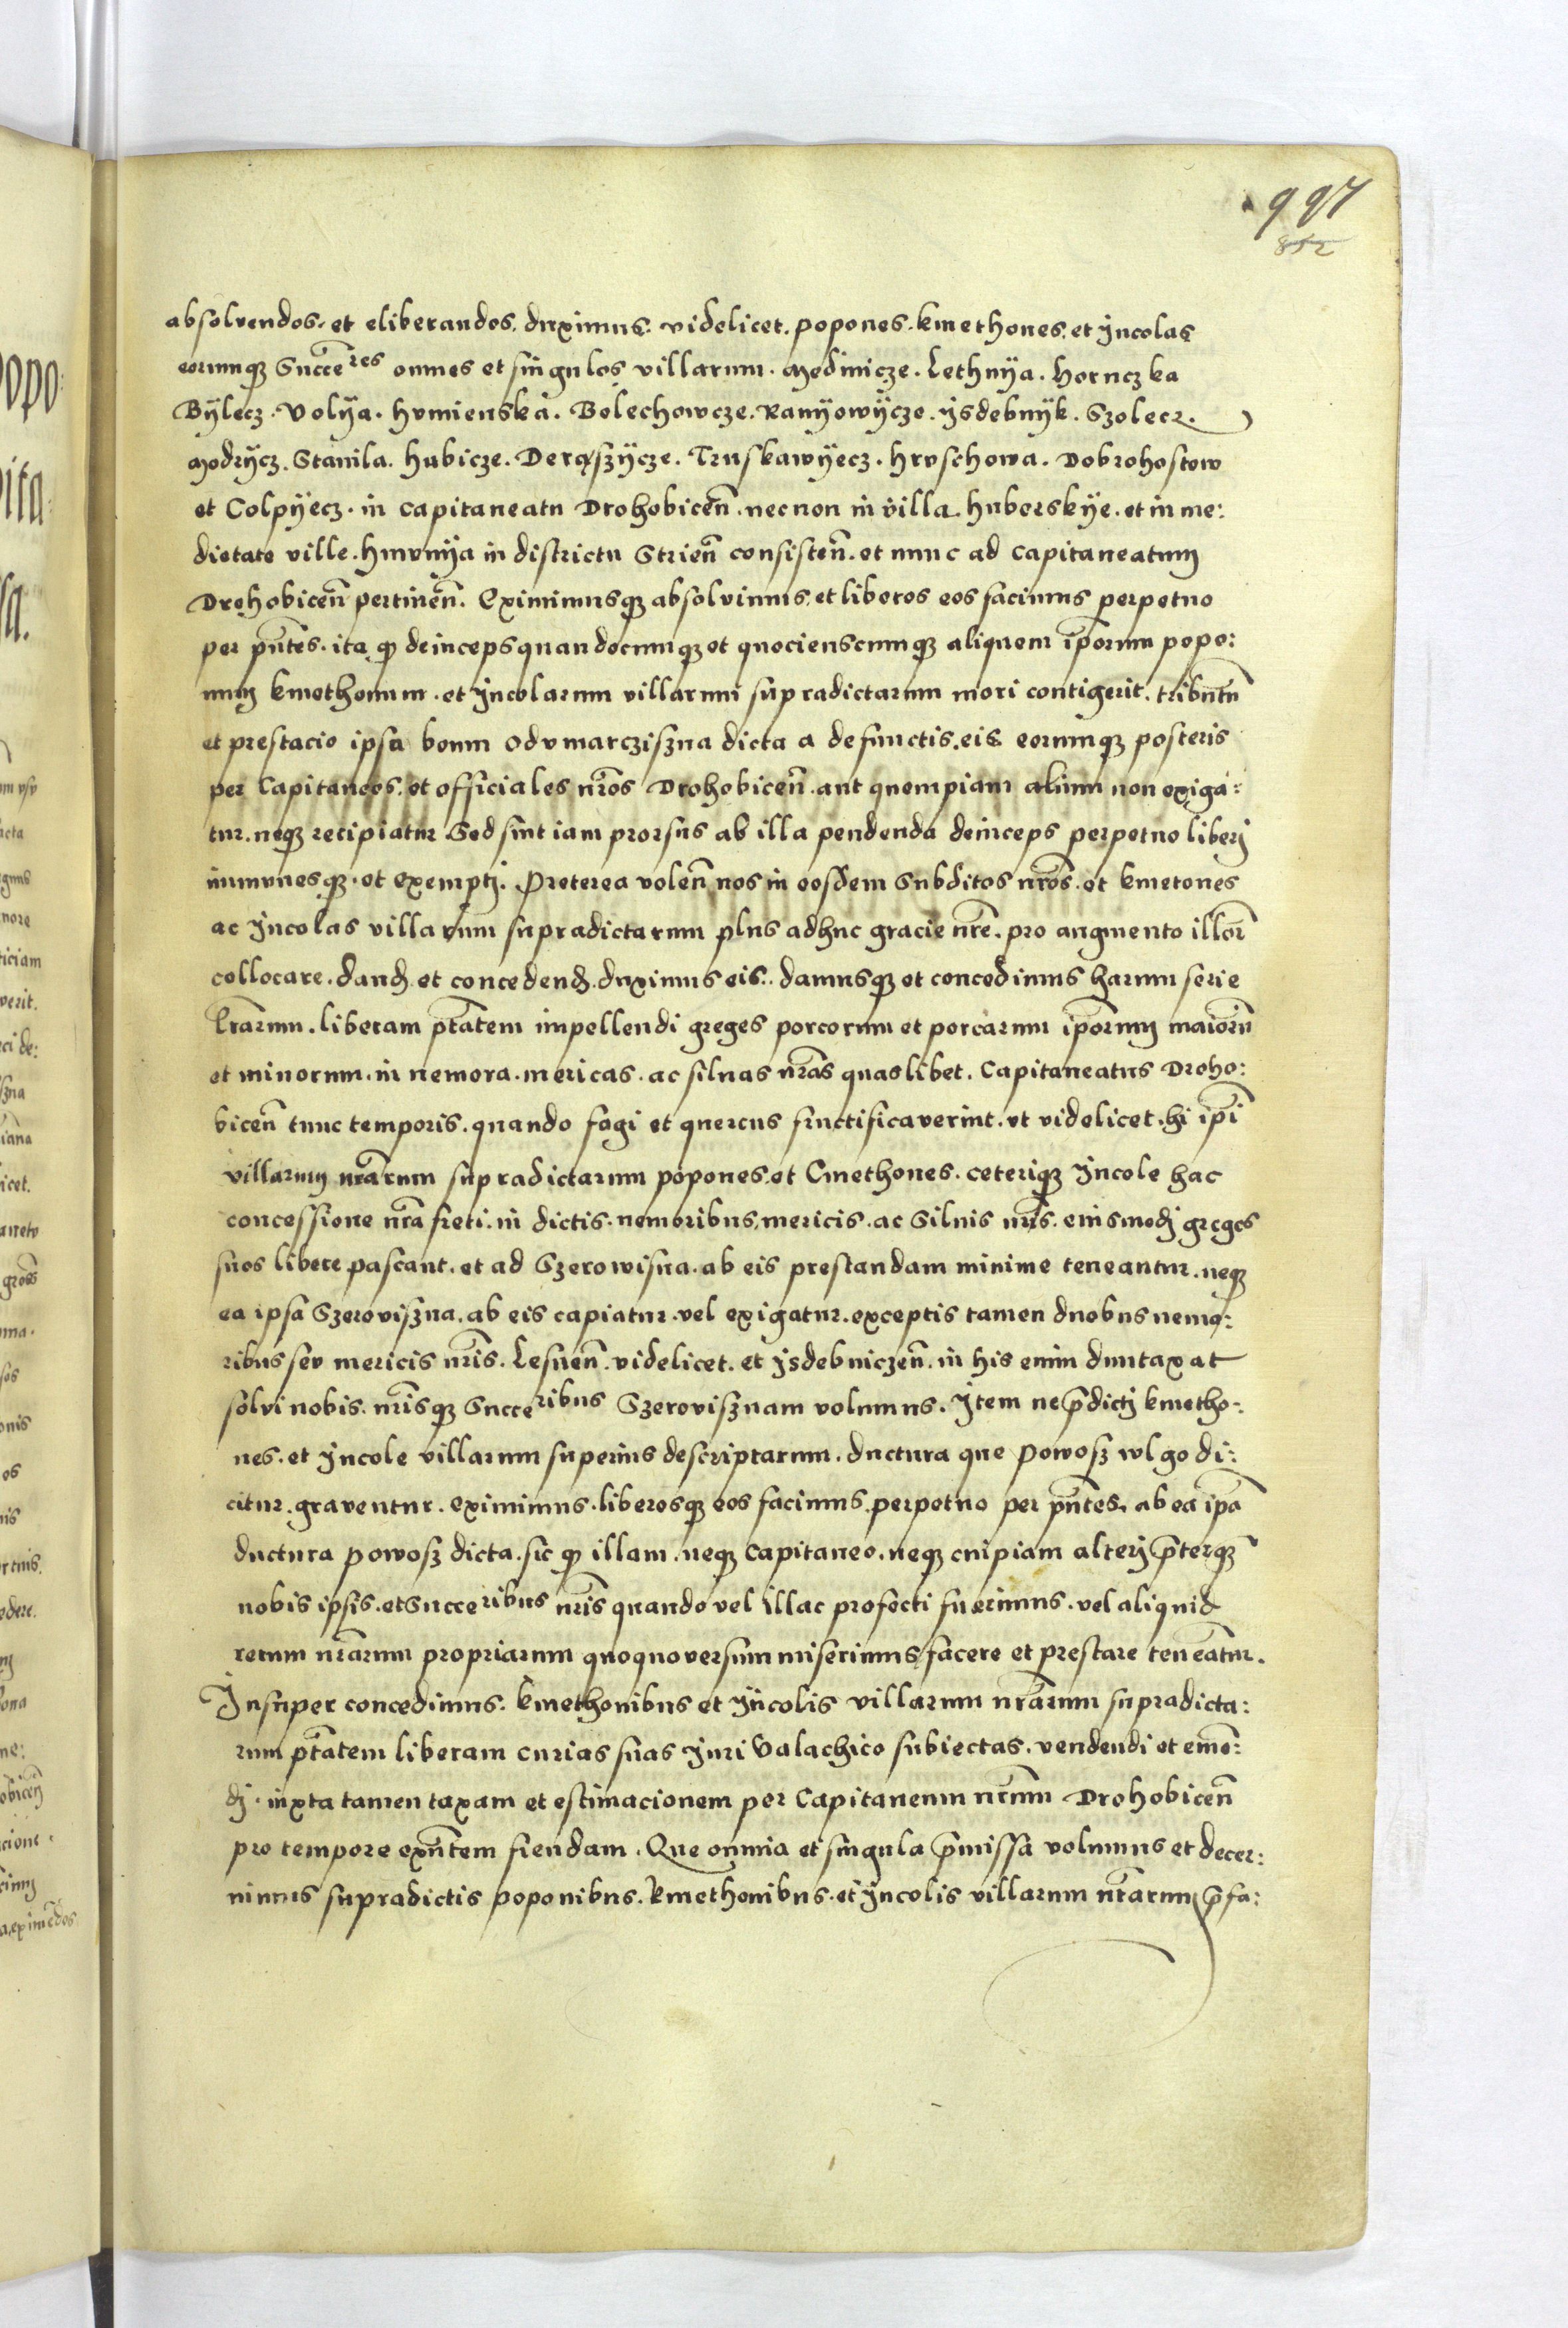 997
852
absolvendos. et eliberandos. duximus. videlicet. popones. kmethones. et Jncolas
eorumqꝫ Succe͞res omnes et singulos villarum. Medinicze. Lethnÿa. Hornczka
Bÿlecz. Volÿa. Humienska. Bolechowcze. Ranÿowÿcze. ÿsdebnÿk. Szolecz.
Modrÿcz. Stanila. Hubicze. Deręszÿcze. Truskawÿecz. Hruschowa. Dobrohostow
et Colpÿecz. in capitaneatu Drohobicen̄. necnon in villa. Huberskÿe. et in me:
dietate ville. Hnunÿa in districtu Strien̄ consisten̄. et nunc ad capitaneatum
Drohobicen̄ pertinen̄. Eximimusqꝫ absolvimus. et liberos eos facimus perpetuo
per pn̄tes. ita ꝙ deinceps quandocumqꝫ et quocienscumqꝫ aliquem ip̄orum popo:
num kmethonum. et Jncolarum villarum supradictarum mori contigerit. tributū
et prestacio ipsa boum Odumarcziszna dicta a defunctis. eis eorumqꝫ posteris
per Capitaneos. et officiales nr̄os Drohobicen̄. aut quempiam alium non exiga:
tur. neqꝫ recipiatur Sed sint iam prorsus ab illa pendenda deinceps perpetuo liberj
immunesqꝫ. et exemptj. Preterea volen̄ nos in eosdem Subditos nr̄os. et kmetones
ac Jncolas villarum supradictarum plus adhuc gracie nr̄e. pro augmento illor̄
collocare. dand̄ et concedend̄. duximus eis. damusqꝫ et concedimus harum serie
lr̄arum. liberam ptātem impellendi greges porcorum et porcarum ip̄orum maiorū
et minorum. in nemora. mericas. ac siluas nr̄as quaslibet. Capitaneatus Droho:
bicen̄ tunc temporis. quando fagi et quercus fructificaverint. vt videlicet. hi ip̄i
villarum nr̄arum supradictarum popones. et Cmethones. ceteriqꝫ Jncole hac
concessione nr̄a freti. in dictis. nemoribus. mericis. ac Siluis nr̄is. eiusmodj greges
suos libere pascant. et ad Szerowisna. ab eis prestandam minime teneantur. neqꝫ
ea ipsa Szeroviszna. ab eis capiatur. vel exigatur. exceptis tamen duobus nemo:
ribus seu mericis nr̄is. Lesnen̄. videlicet. et Jsdebniczen̄. in his enim duntaxat
solvi nobis. nr̄isqꝫ Succe͞ribus Szerovisznam volumus. Jtem ne p̄dictj kmetho:
nes. et Jncole villarum superius descriptarum. ductura que Powosz wlgo di:
citur. graventur. eximimus. liberosqꝫ eos facimus. perpetuo per pn̄tes. ab ea ip̄a
ductura Powosz dicta. sic ꝙ illam. neqꝫ capitaneo. neqꝫ cuipiam alterj p̄terqꝫ
nobis ipsis. et Succeribus nr̄is quando vel illac profecti fuerimus. vel aliquid
rerum nr̄arum propriarum quoquoversum miserimus facere et prestare teneātur.
Jnsuper concedimus. kmethonibus et Jncolis villarum nr̄arum supradicta:
rum ptātem liberam curias suas Juri Valachico subiectas. vendendi et emē:
dj. iuxta tamen taxam et estimacionem per Capitaneum nr̄um Drohobicen̄
pro tempore exn̄tem fiendam. Que omnia et singula p̄missa volumus et decer:
nimus supradictis poponibus. kmethonibus. et Jncolis villarum nr̄arum p̄fa: